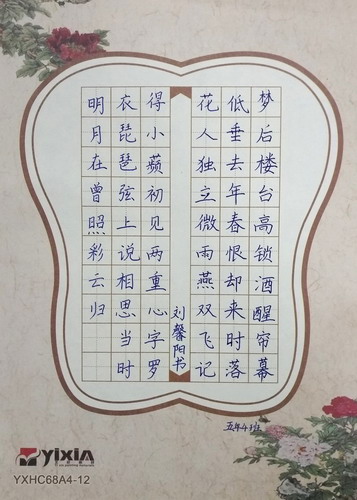 梦后楼台高锁酒醒帘幕
低垂去年春恨却来时落
花人独立微雨燕双飞记
得小蘋初见两重心字罗
衣琵琶弦上说相思当时
明月在曾照彩云归
刘馨阳书
五年4班
yixin
YXHC68A4-12